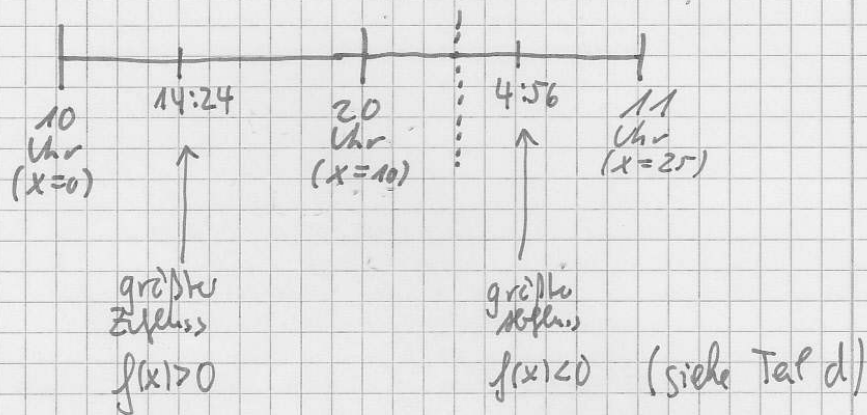 10
Uhr
(x=0)
14:24
20
Uhr
(x=10)
4:56
11
Uhr
(x=25)
größter
Zufluss
f(x)>0
größter
Abfluss
f(x)<0 (siehe Teil d)